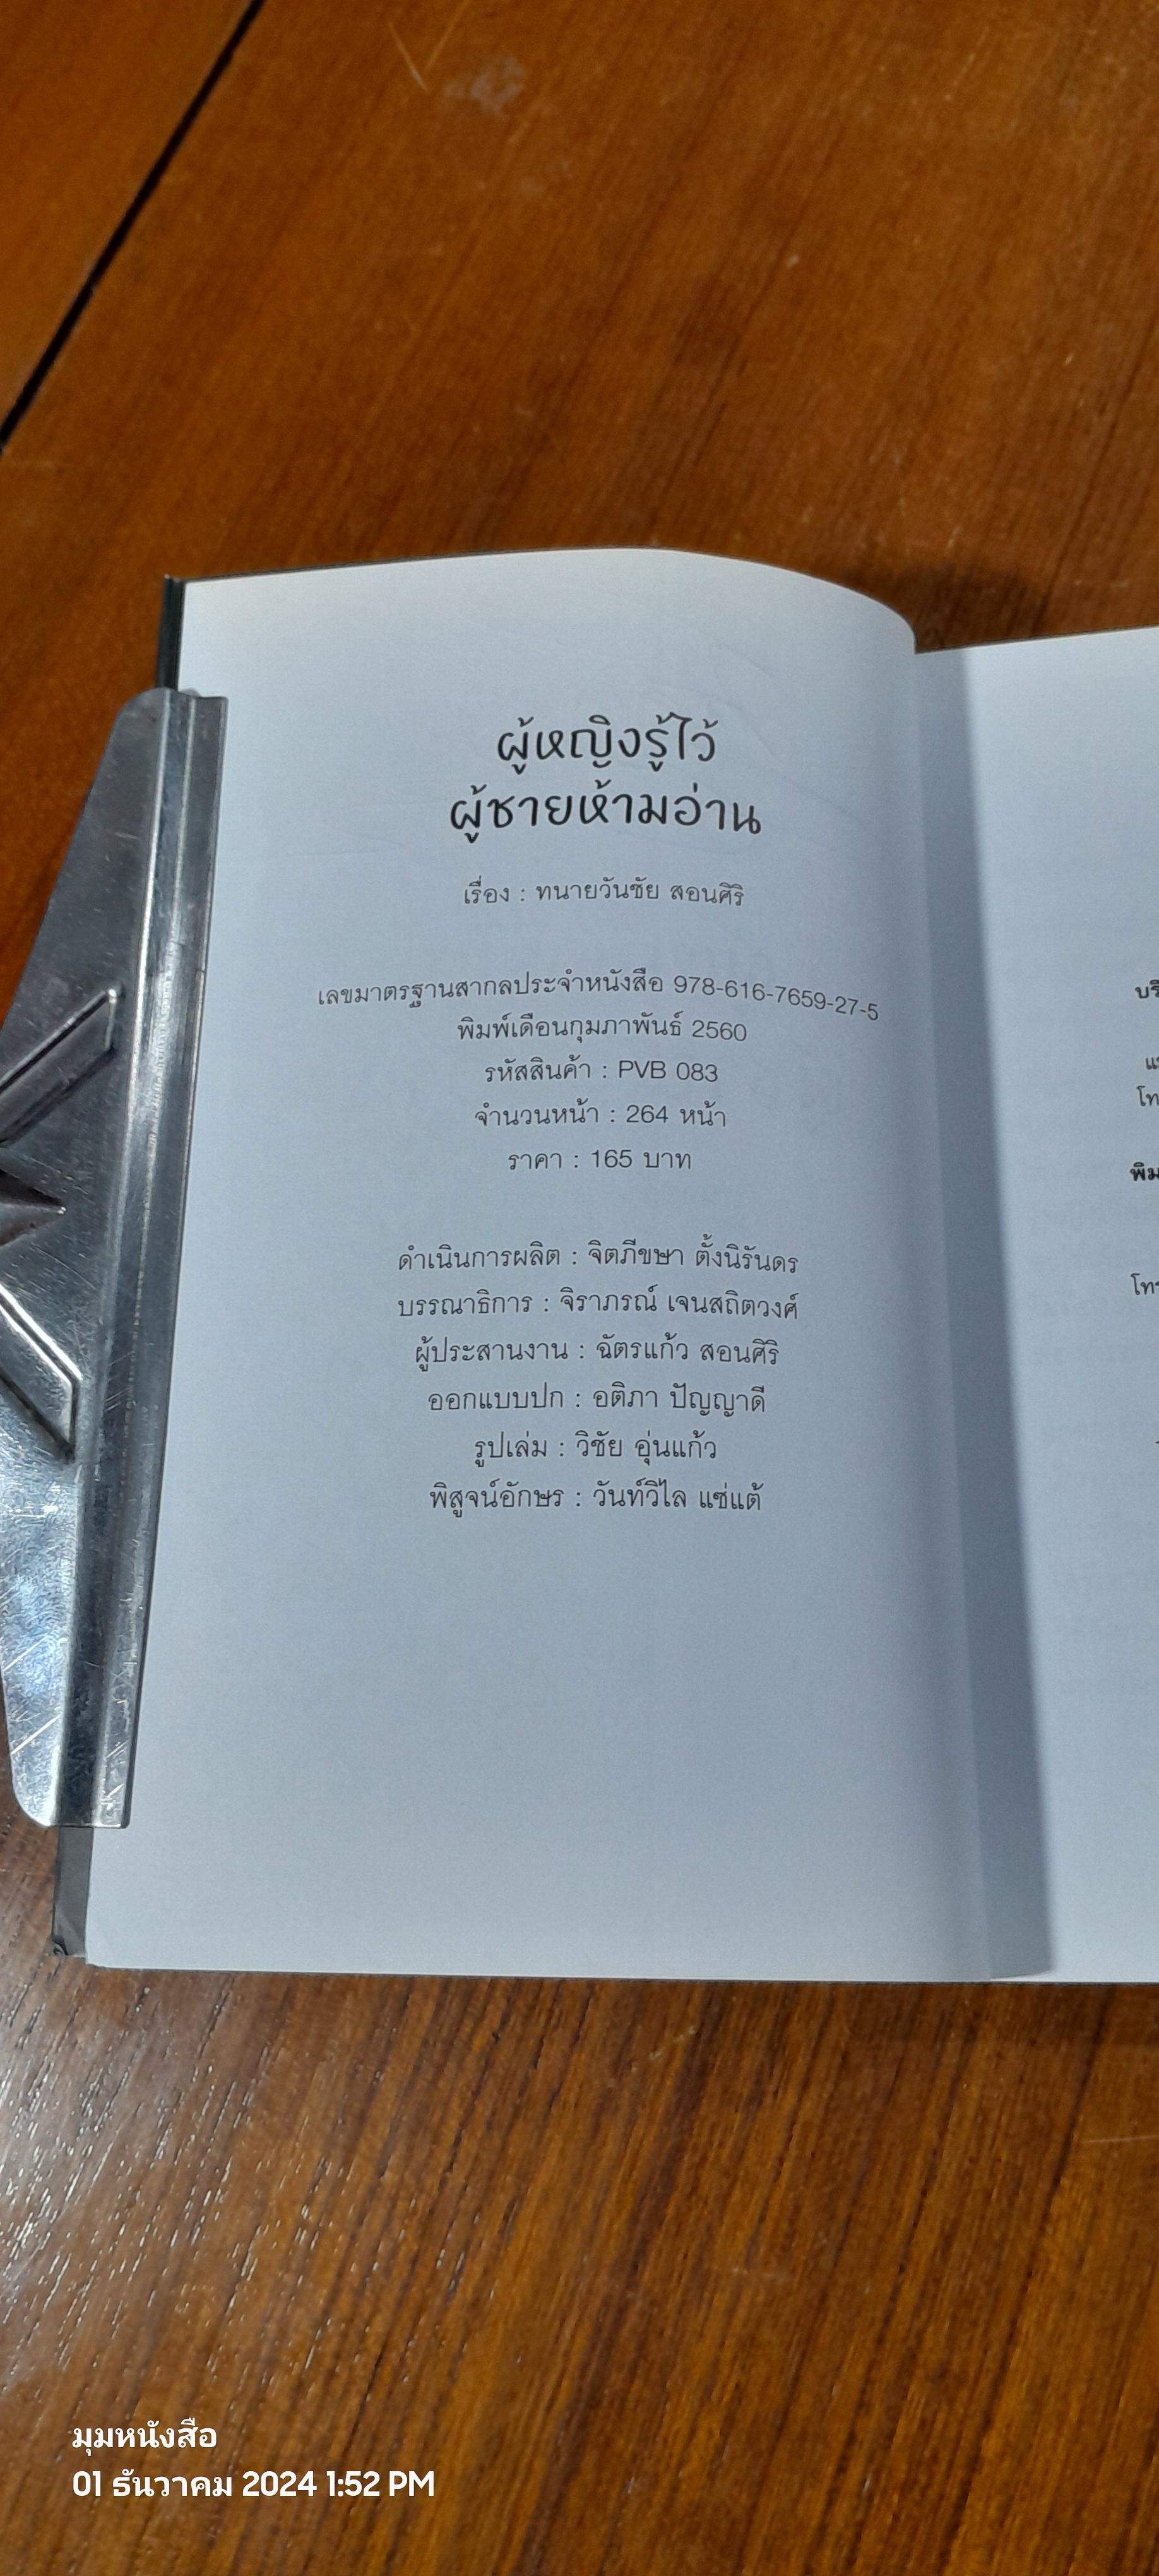 ผู้หญิงรู้ไว้
ผู้ชายห้ามอ่าน
เรื่อง : ทนายวันชัย สอนศิริ
เลขมาตรฐานสากลประจำหนังสือ 978-616-7659-27-5
พิมพ์เดือนกุมภาพันธ์ 2560
รหัสสินค้า : PVB 083
จำนวนหน้า : 264 หน้า
ราคา : 165 บาท
ดำเนินการผลิต : จิตภีขษา ตั้งนิรันดร
บรรณาธิการ : จิราภรณ์ เจนสถิตวงศ์
ผู้ประสานงาน : ฉัตรแก้ว สอนศิริ
ออกแบบปก : อติภา ปัญญาดี
รูปเล่ม : วิชัย อุ่นแก้ว
พิสูจน์อักษร : วันท์วิไล แซ่แต้
มุมหนังสือ
01 ธันวาคม 2024 1:52 PM